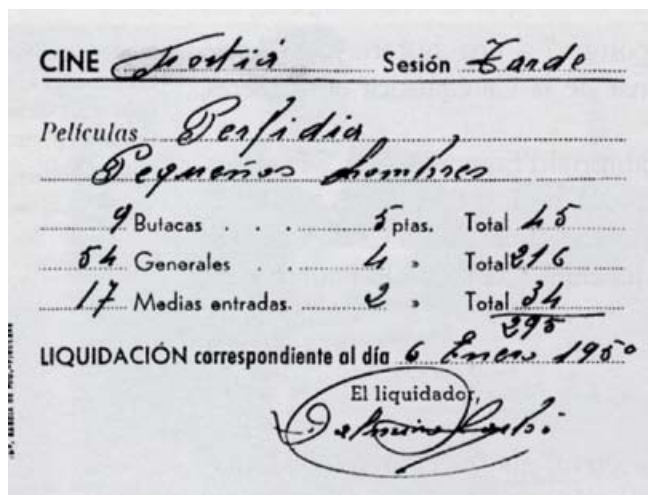 CINE Sesión Tarde
Películas Perfidia
Pequeños hombres
9 Butacas . . . 5 ptas. Total 45
54 Generales . . . 4 » Total 216
17 Medias entradas. 2 » Total 34
295
LIQUIDACIÓN correspondiente al día 6 Enero 1950
El liquidador,